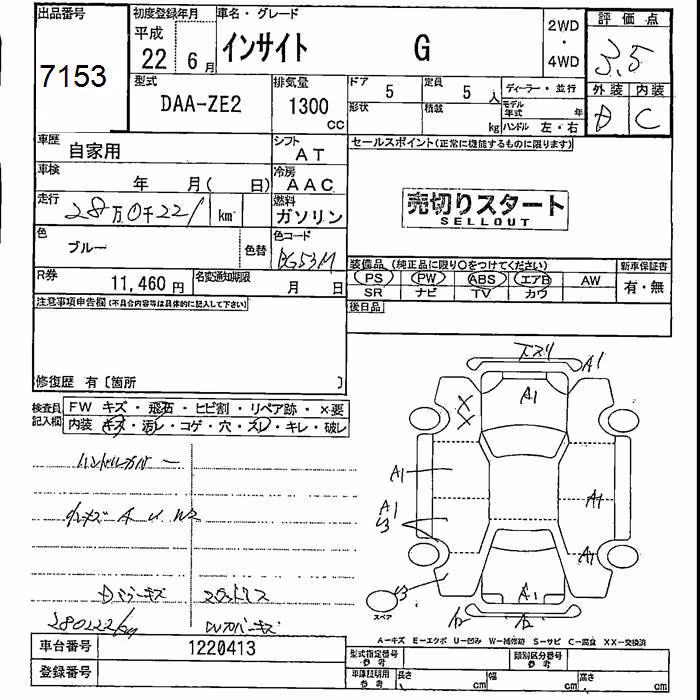 出品番号
7153
初度登録年月
平成
22年6月
車名・グレード
インサイト G
2WD
・
4WD
評価点
3.5
外装 内装
D C
型式
DAA-ZE2
排気量
1300
CC
ドア 5
定員 5人
形状
積載 kg
ディーラー・並行
モデル年式 年
ハンドル 左・右
車歴
自家用
シフト
AT
車検
年 月( 日)
冷房
AAC
走行
28万0千221 km
燃料
ガソリン
色
ブルー
色替
色コード
BG53M
R券
11,460円
名変通知期限
月 日
セールスポイント(正常に機能するものに限ります)
売切りスタート
SELLOUT
装備品 (純正品に限り○をつけてください)
PS PW ABS エアB AW
SR ナビ TV カワ
新車保証書
有・無
後日品
注意事項申告欄(不具合内容等は具体的に記入して下さい)
修復歴 有〔箇所 〕
検査員記入欄
FW キズ・飛石・ヒビ割・リペア跡・×要
内装 キズ・汚レ・コゲ・穴・スレ・キレ・破レ
ハンドルカバー
小キズ A U W2
280221km
A1
A1
XX
A1
A1
A1
A1
A1
スペア
A-キズ E-エクボ U-凹み W-補修跡 S-サビ C-腐食 XX-交換済
車台番号
1220413
登録番号
型式指定番号
参考
類別区分番号
参考
車庫証明用
参考
長さ cm
幅 cm
高さ cm